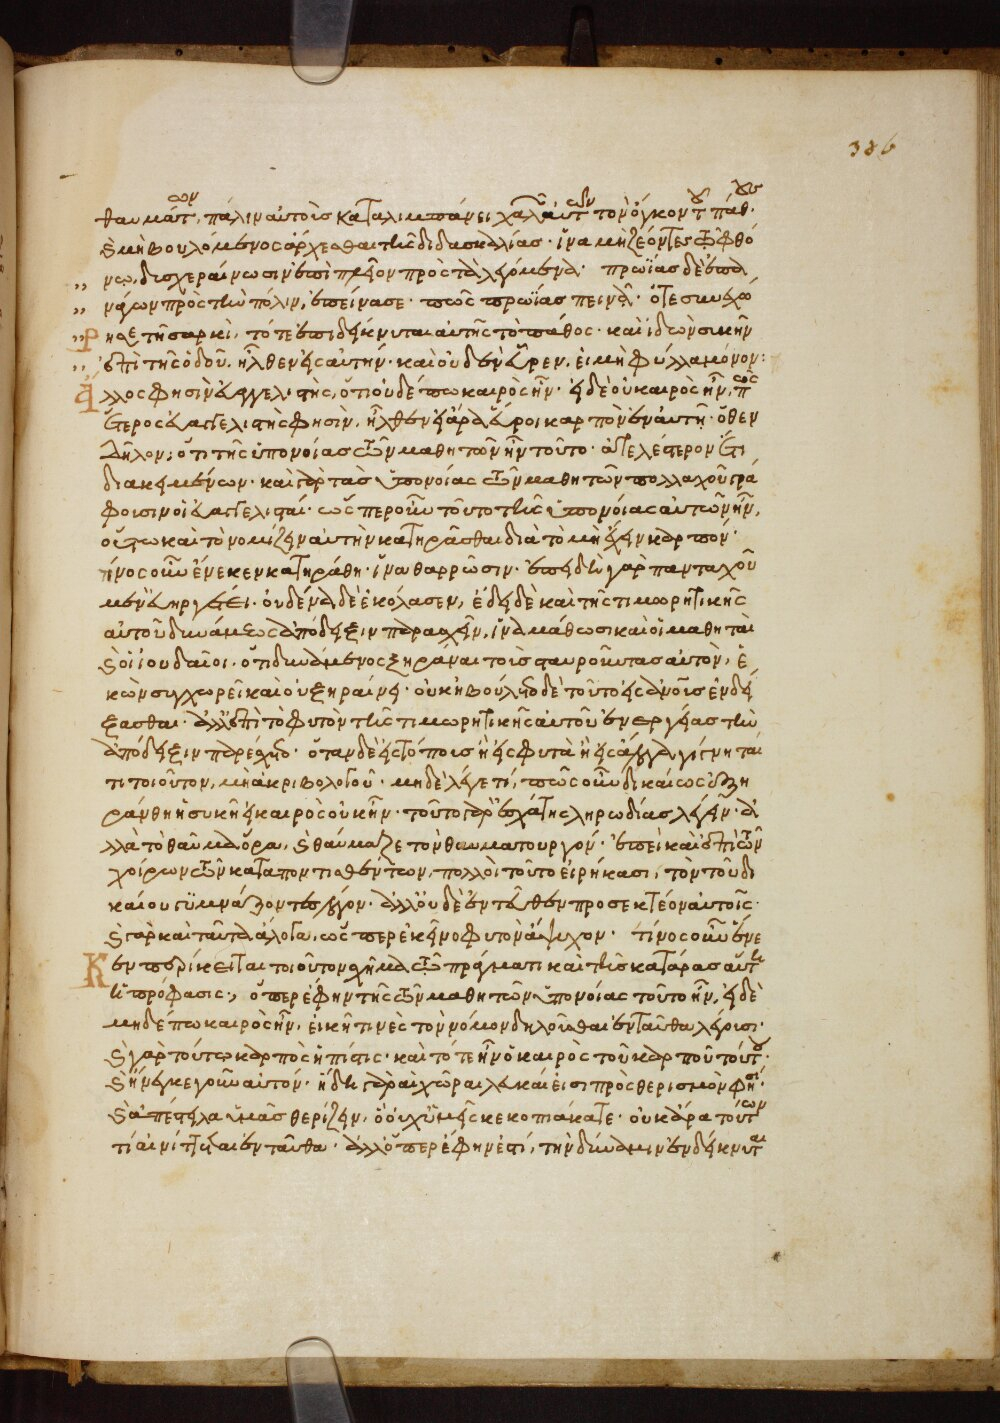 336
θαυμάτων, πάλιν αὐτοὺς καταλιμπάνει χαλῶν αὐτῶν τὸν ὄγκον τοῦ πάθους·
καὶ μὴ βουλόμενος ἄρχεσθαι τῆς διδασκαλίας· ἵνα μὴ ζέοντες τῶ φθό
νω, δυσχεραίνωσιν ἐπὶ πλέον πρὸς τὰ λεγόμενα· πρωΐας δὲ ἐπα
νάγων πρὸς τὴν πόλιν, ἐπείνασε· πῶς πρωΐας πεινᾶ· ὅτε συνεχώ
ρησε τῆ σαρκὶ, τότε ἐπιδείκνυται αὐτῆς τὸ πάθος· καὶ ἰδὼν συκῆν
ἐπὶ τῆς ὁδοῦ, ἦλθεν εἰς αὐτήν· καὶ οὐδὲν εὗρεν, εἰ μὴ φύλλα μόνον:
ἄλλος φησὶν εὐαγγελιστὴς, ὅτι οὐδέπω καιρὸς ἦν· εἰ δὲ οὐ καιρὸς ἦν, πῶς
ἕτερος εὐαγγελιστής φησὶν, ἦλθεν εἰ ἄρα εὕροι καρπὸν ἐν αὐτῆ· ὅθεν
δῆλον, ὅτι τῆς ὑπονοίας τῶν μαθητῶν ἦν τοῦτο· ἀτελέστερον ἔτι
διακειμένων· καὶ γὰρ τὰς ὑπονοίας τῶν μαθητῶν πολλαχοῦ γρά
φουσιν οἱ εὐαγγελισταί· ὥσπερ οὖν τοῦτο τῆς ὑπονοίας αὐτῶν ἦν,
οὕτω καὶ τὸ νομίζειν αὐτὴν κατηρᾶσθαι διὰ τὸ μὴ ἔχειν καρπόν·
τίνος οὖν ἕνεκεν κατηράθη· ἵνα θαρρῶσιν· ἐπειδὴ γὰρ πανταχοῦ
μὲν εὐηργέτει· οὐδένα δὲ ἐκόλασεν, ἔδει δὲ καὶ τῆς τιμωρητικῆς
αὐτοῦ δυνάμεως ἀπόδειξιν παρασχεῖν, ἵνα μάθωσι καὶ οἱ μαθηταὶ
καὶ οἱ ἰουδαῖοι, ὅτι δυνάμενος ξηράναι τοὺς σταυροῦντας αὐτὸν, ἑ
κὼν συγχωρεῖ καὶ οὐ ξηραίνει· οὐκ ἠβούλετο δὲ τοῦτο εἰς ἀνθρώπους ἐνδεί
ξασθαι· ἀλλ' ἐπὶ τὸ φυτὸν τῆς τιμωρητικῆς αὐτοῦ ἐνεργείας τὴν
ἀπόδειξιν παρέσχετο· ὅταν δὲ εἰς τόπους ἢ εἰς φυτὰ ἢ εἰς ἄλογα γίνηταί
τι τοιοῦτον, μὴ ἀκριβολογοῦ· μηδὲ λέγε τί, πῶς οὖν δικαίως ἐξη
ράνθη ἡ συκῆ εἰ καιρὸς οὐκ ἦν· τοῦτο γὰρ ἐσχάτης ληρωδίας λέγειν· ἀλ
λὰ τὸ θαῦμα ὅρα, καὶ θαύμαζε τὸν θαυματουργόν· ἐπεὶ καὶ ἐπὶ τῶν
χοίρων τῶν καταποντισθέντων, πολλοὶ τοῦτο εἰρήκασι, τὸν τοῦ δι
καίου γυμνάζοντες λόγον· ἀλλ' οὐδὲ ἐνταῦθεν προσεκτέον αὐτοῖς·
καὶ γὰρ καὶ ταῦτα ἄλογα, ὥσπερ ἐκεῖνο φυτὸν ἄψυχον· τίνος οὖν ἕνε
κεν περίκειται τοιοῦτον σχῆμα τῶ πράγματι καὶ τῆς κατάρας αὕτη
ἡ πρόφασις· ὅπερ ἔφην τῆς τῶν μαθητῶν ὑπονοίας τοῦτο ἦν, εἰ δὲ
μηδέπω καιρὸς ἦν, εἰκῆ τινὲς τὸν νόμον δηλοῦσθαι ἐνταῦθα λέγουσι·
καὶ γὰρ τούτω καρπὸς ἡ πίστις· καὶ τότε ἦν ὁ καιρὸς τοῦ καρποῦ τούτου·
καὶ ἤνεγκε γοῦν αὐτόν· ἤδη γὰρ αἱ χῶραι λευκαί εἰσι πρὸς θερισμὸν φησί·
καὶ ἀπέστειλα ὑμᾶς θερίζειν, ὃ οὐχ ὑμεῖς κεκοπιάκατε· οὐκ ἄρα τούτων
τί αἰνίττεται ἐνταῦθα· ἀλλ' ὅπερ ἔφην ἐστί, τὴν δύναμιν ἐνδείκνυται